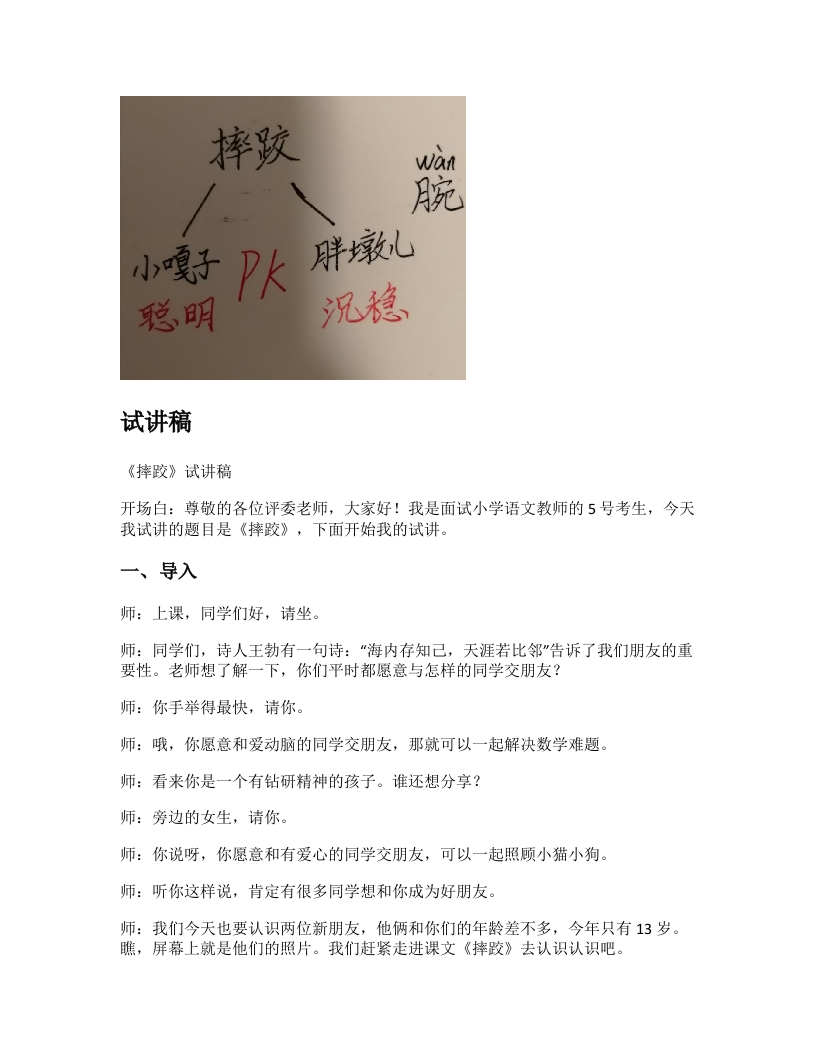 摔跤
wàn
腕
小嘎子 PK 胖墩儿
聪明 沉稳
试讲稿
《摔跤》试讲稿
开场白：尊敬的各位评委老师，大家好！我是面试小学语文教师的 5 号考生，今天
我试讲的题目是《摔跤》，下面开始我的试讲。
一、导入
师：上课，同学们好，请坐。
师：同学们，诗人王勃有一句诗：“海内存知己，天涯若比邻”告诉了我们朋友的重
要性。老师想了解一下，你们平时都愿意与怎样的同学交朋友？
师：你手举得最快，请你。
师：哦，你愿意和爱动脑的同学交朋友，那就可以一起解决数学难题。
师：看来你是一个有钻研精神的孩子。谁还想分享？
师：旁边的女生，请你。
师：你说呀，你愿意和有爱心的同学交朋友，可以一起照顾小猫小狗。
师：听你这样说，肯定有很多同学想和你成为好朋友。
师：我们今天也要认识两位新朋友，他俩和你们的年龄差不多，今年只有 13 岁。
瞧，屏幕上就是他们的照片。我们赶紧走进课文《摔跤》去认识认识吧。